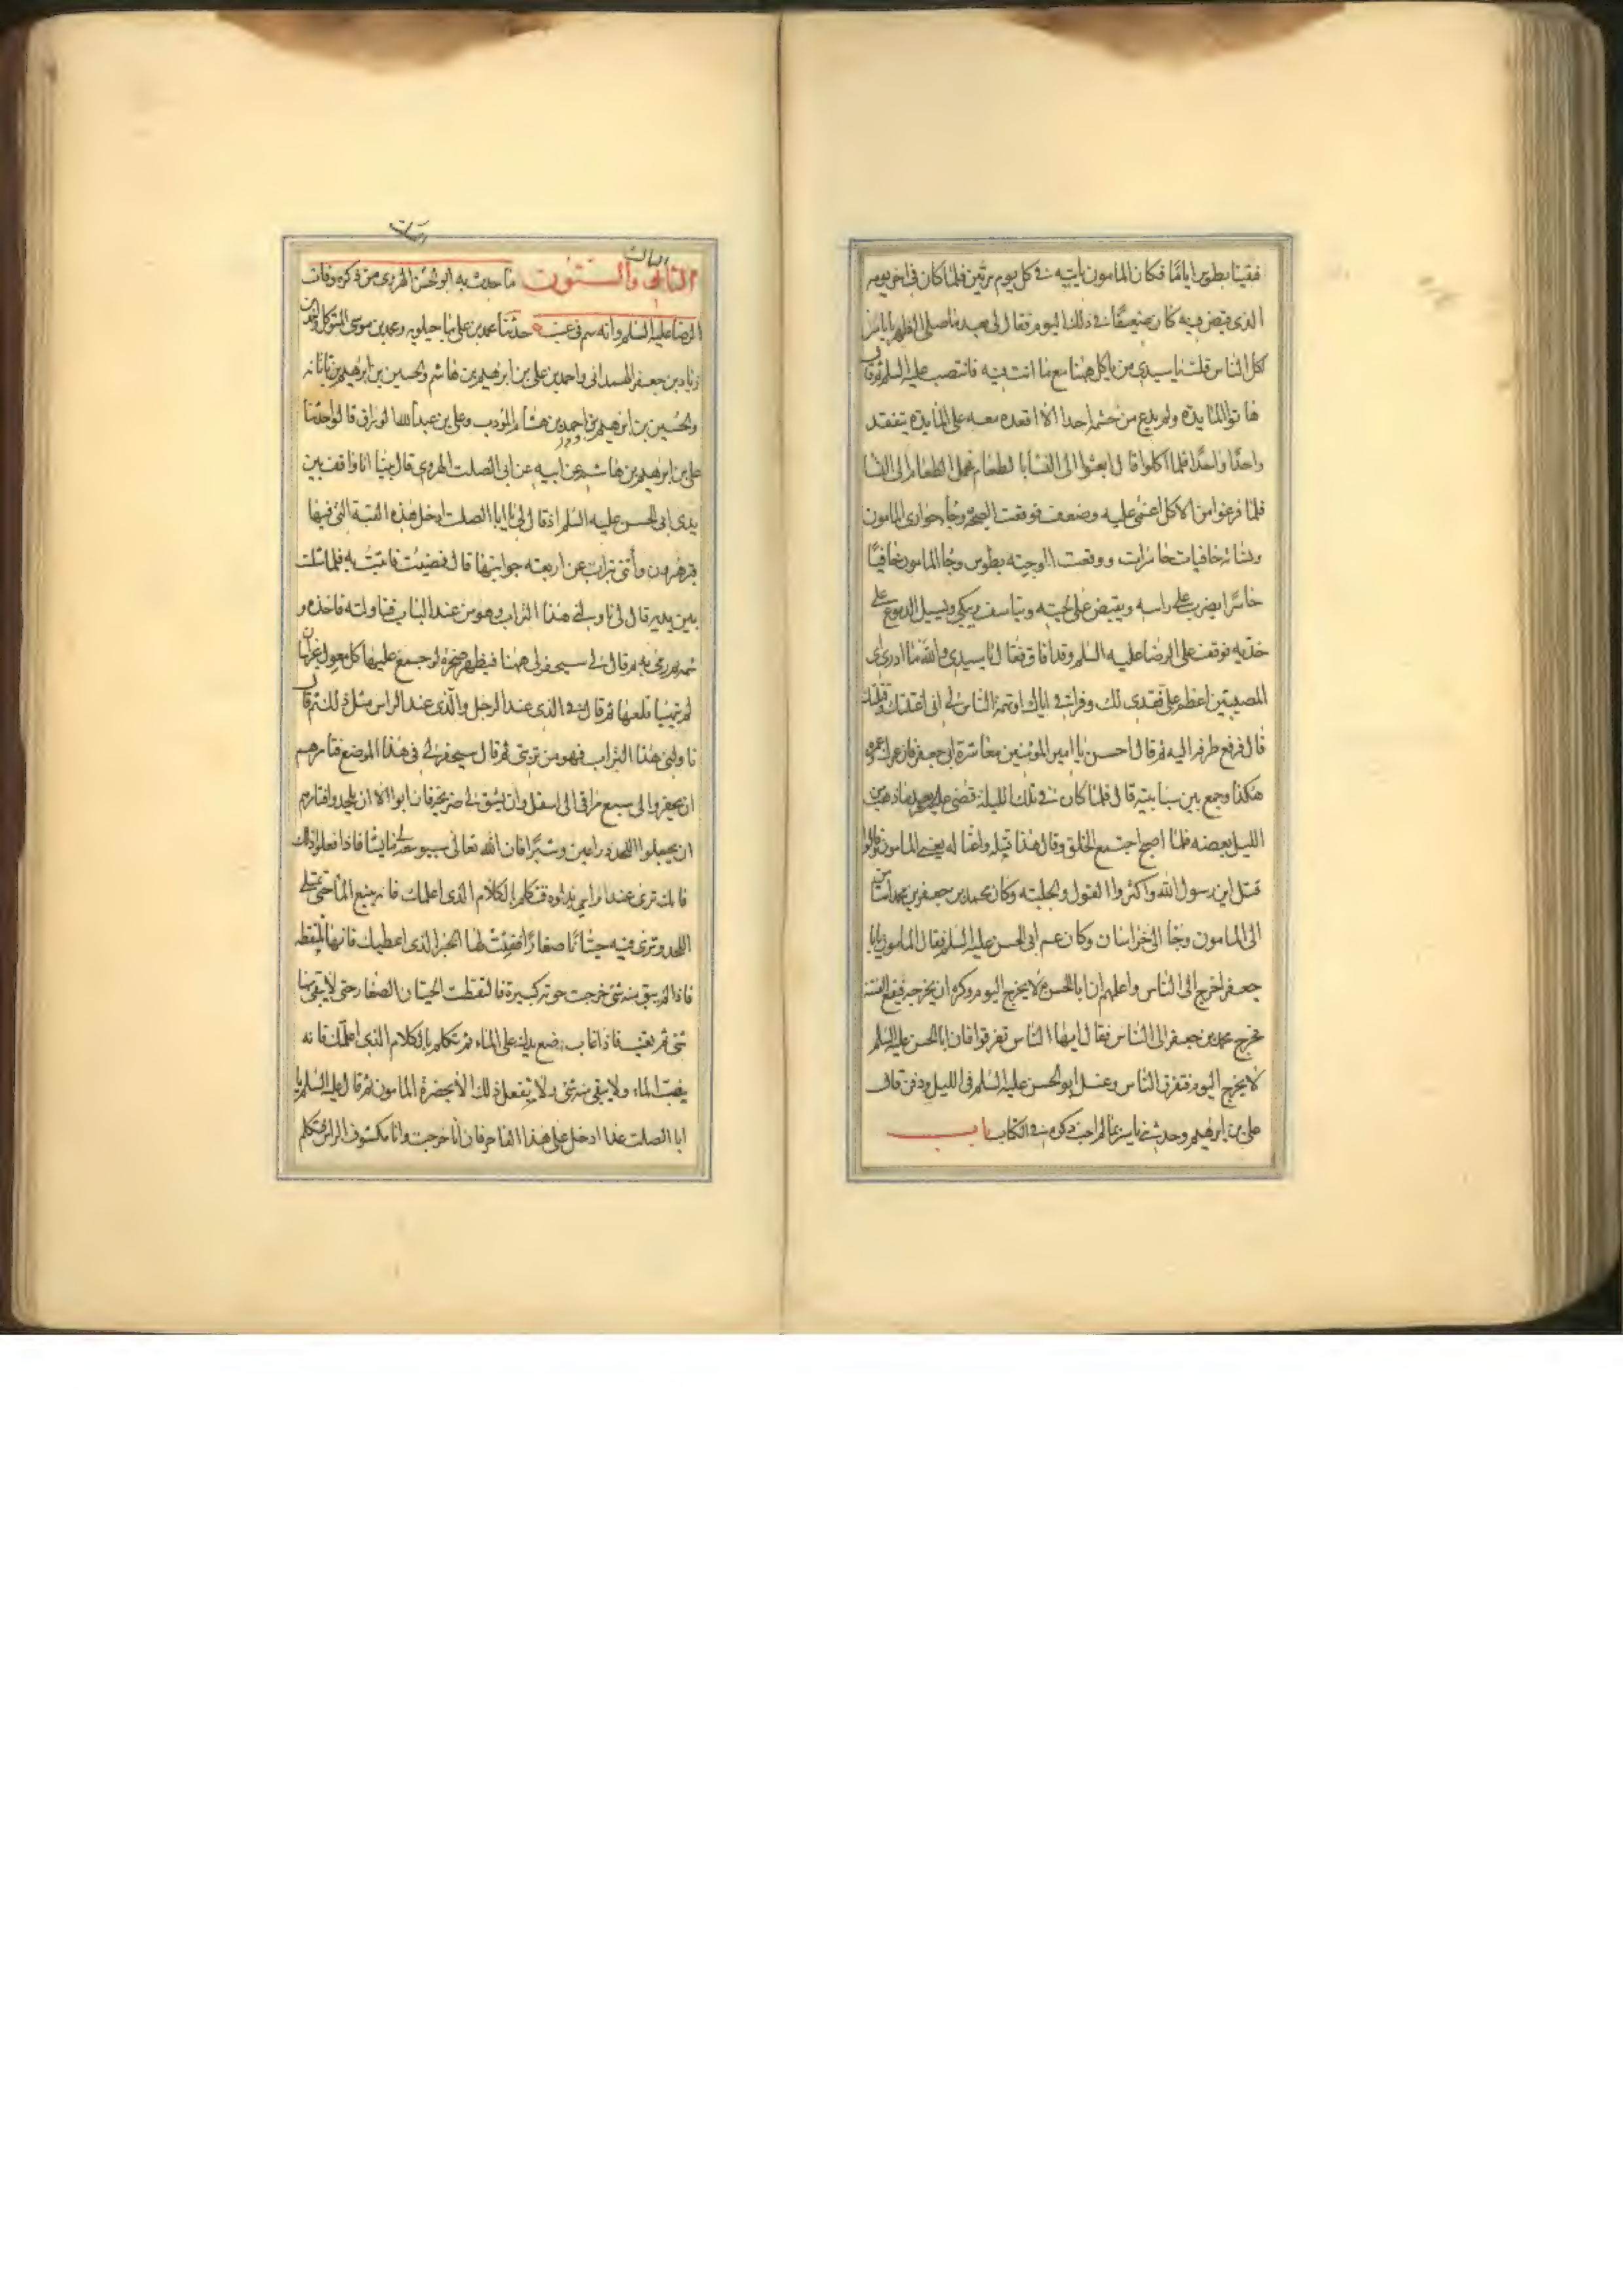 فقينا بطوس اياما فكان المامون ياتيه في كل يوم مرتين فلما كان في اخر يومه
الذي قبض فيه كان ضعيفا في ذلك اليوم فقال لي بعد ما صلى الظهر يا ياسر
اكل الناس قلت يا سيدي من ياكل ههنا مع ما انت فيه فانتصب عليه السلم ثم قال
هاتوا المايدة ولم يدع من حشمه احدا الا اقعده معه على المايدة يتفقد
واحدا واحدا فلما اكلوا قال ابعثوا الى النسا بالطعام فحمل الطعام الى النسا
فلما فرغوا من الاكل اغمي عليه وضعف فوقعت الصيحة وجا جواري المامون
ونساؤه حافيات حاسرات ووقعت الوجبة بطوس وجا المامون حافيا
حاسرا يضرب على راسه ويقبض على لحيته ويتاسف ويبكي وتسيل الدموع على
خديه فوقف على الرضا عليه السلم وقد افاق فقال يا سيدي والله ما ادري اي
المصيبتين اعظم علي فقدي لك وفراقي اياك او تهمة الناس لي اني اغتلتك وقتلتك
قال فرفع طرفه اليه ثم قال احسن يا امير المؤمنين معاشرة ابي جعفر فان عمرك وعمره
هكذا وجمع بين سبابتيه قال فلما كان في تلك الليلة قضى عليه بعد ما ذهب من
الليل بعضه فلما اصبح اجتمع الخلق وقال هذا قتله واغتاله يعني المامون وقالوا
قتل ابن رسول الله واكثروا القول والجلبة وكان محمد بن جعفر بن محمد استامن
الى المامون وجا الى خراسان وكان عم ابي الحسن عليه السلم فقال المامون يا با
جعفر اخرج الى الناس واعلمهم ان ابا الحسن ع لا يخرج اليوم وكره ان يخرجه فيقع الفتنة
فخرج محمد بن جعفر الى الناس فقال ايها الناس تفرقوا فان ابا الحسن عليه السلم
لا يخرج اليوم فتفرق الناس وغسل ابو الحسن عليه السلم في الليل ودفن قال
علي بن ابرهيم وحدثني ياسر بما لم احب ذكره في الكتاب باب
الثالث
الثاني والستون ما حدث به ابو الحسن الهروي من ذكر وفات
الرضا عليه السلم وانه سم في عنب حدثنا محمد بن علي ماجيلويه ومحمد بن موسى المتوكل واحمد بن
زياد بن جعفر الهمداني واحمد بن علي بن ابرهيم بن هاشم والحسين بن ابرهيم بن تاتانه
والحسين بن ابرهيم بن احمد بن هشام المؤدب وعلي بن عبد الله الوراق قالوا حدثنا
علي بن ابرهيم بن هاشم عن ابيه عن ابي الصلت الهروي قال بينا انا واقف بين
يدي ابي الحسن عليه السلم اذ قال لي يا ابا الصلت ادخل هذه القبة التي فيها
قبر هرون وأتني تراب عن اربعة جوانبها قال فمضيت فاتيت به فلما مثلت
بين يديه قال لي ناولني هذا التراب وهو من عند الباب فناولته فاخذه و
شمه ثم رمى به ثم قال لي سيحفر لي ههنا فيظهر صخرة لو جمع عليها كل معول بخراسان
لم يتهيا قلعها ثم قال في الذي عند الرجل والذي عند الراس مثل ذلك ثم قال
ناولني هذا التراب فهو من تربتي ثم قال سيحفر لي في هذا الموضع فتامرهم
ان يحفروا الى سبع مراقي الى اسفل وان يشق لي ضريحه فان ابوا الا ان يلحدوا فتامرهم
ان يجعلوا اللحد ذراعين وشبرا فان الله تعالى سيوسعه لي ما يشا فاذا فعلوا ذلك
فانك ترى عند راسي نداوة فتكلم بالكلام الذي اعلمك فانه ينبع الما حتى يمتلي
اللحد وترى فيه حيتانا صغارا ففتت لها الخبز الذي اعطيك فانها تلتقطه
فاذا لم يبق منه شي خرجت حوتة كبيرة فالتقطت الحيتان الصغار حتى لا يبقى منها
شي ثم يغيب فاذا غاب فضع يدك على الماء ثم تكلم بالكلام الذي اعلمك فانه
ينضب الماء ولا يبقى منه شي ولا تفعل ذلك الا بحضرة المامون ثم قال عليه السلم يا
ابا الصلت غدا ادخل على هذا الفاجر فان انا خرجت وانا مكشوف الراس فتكلم